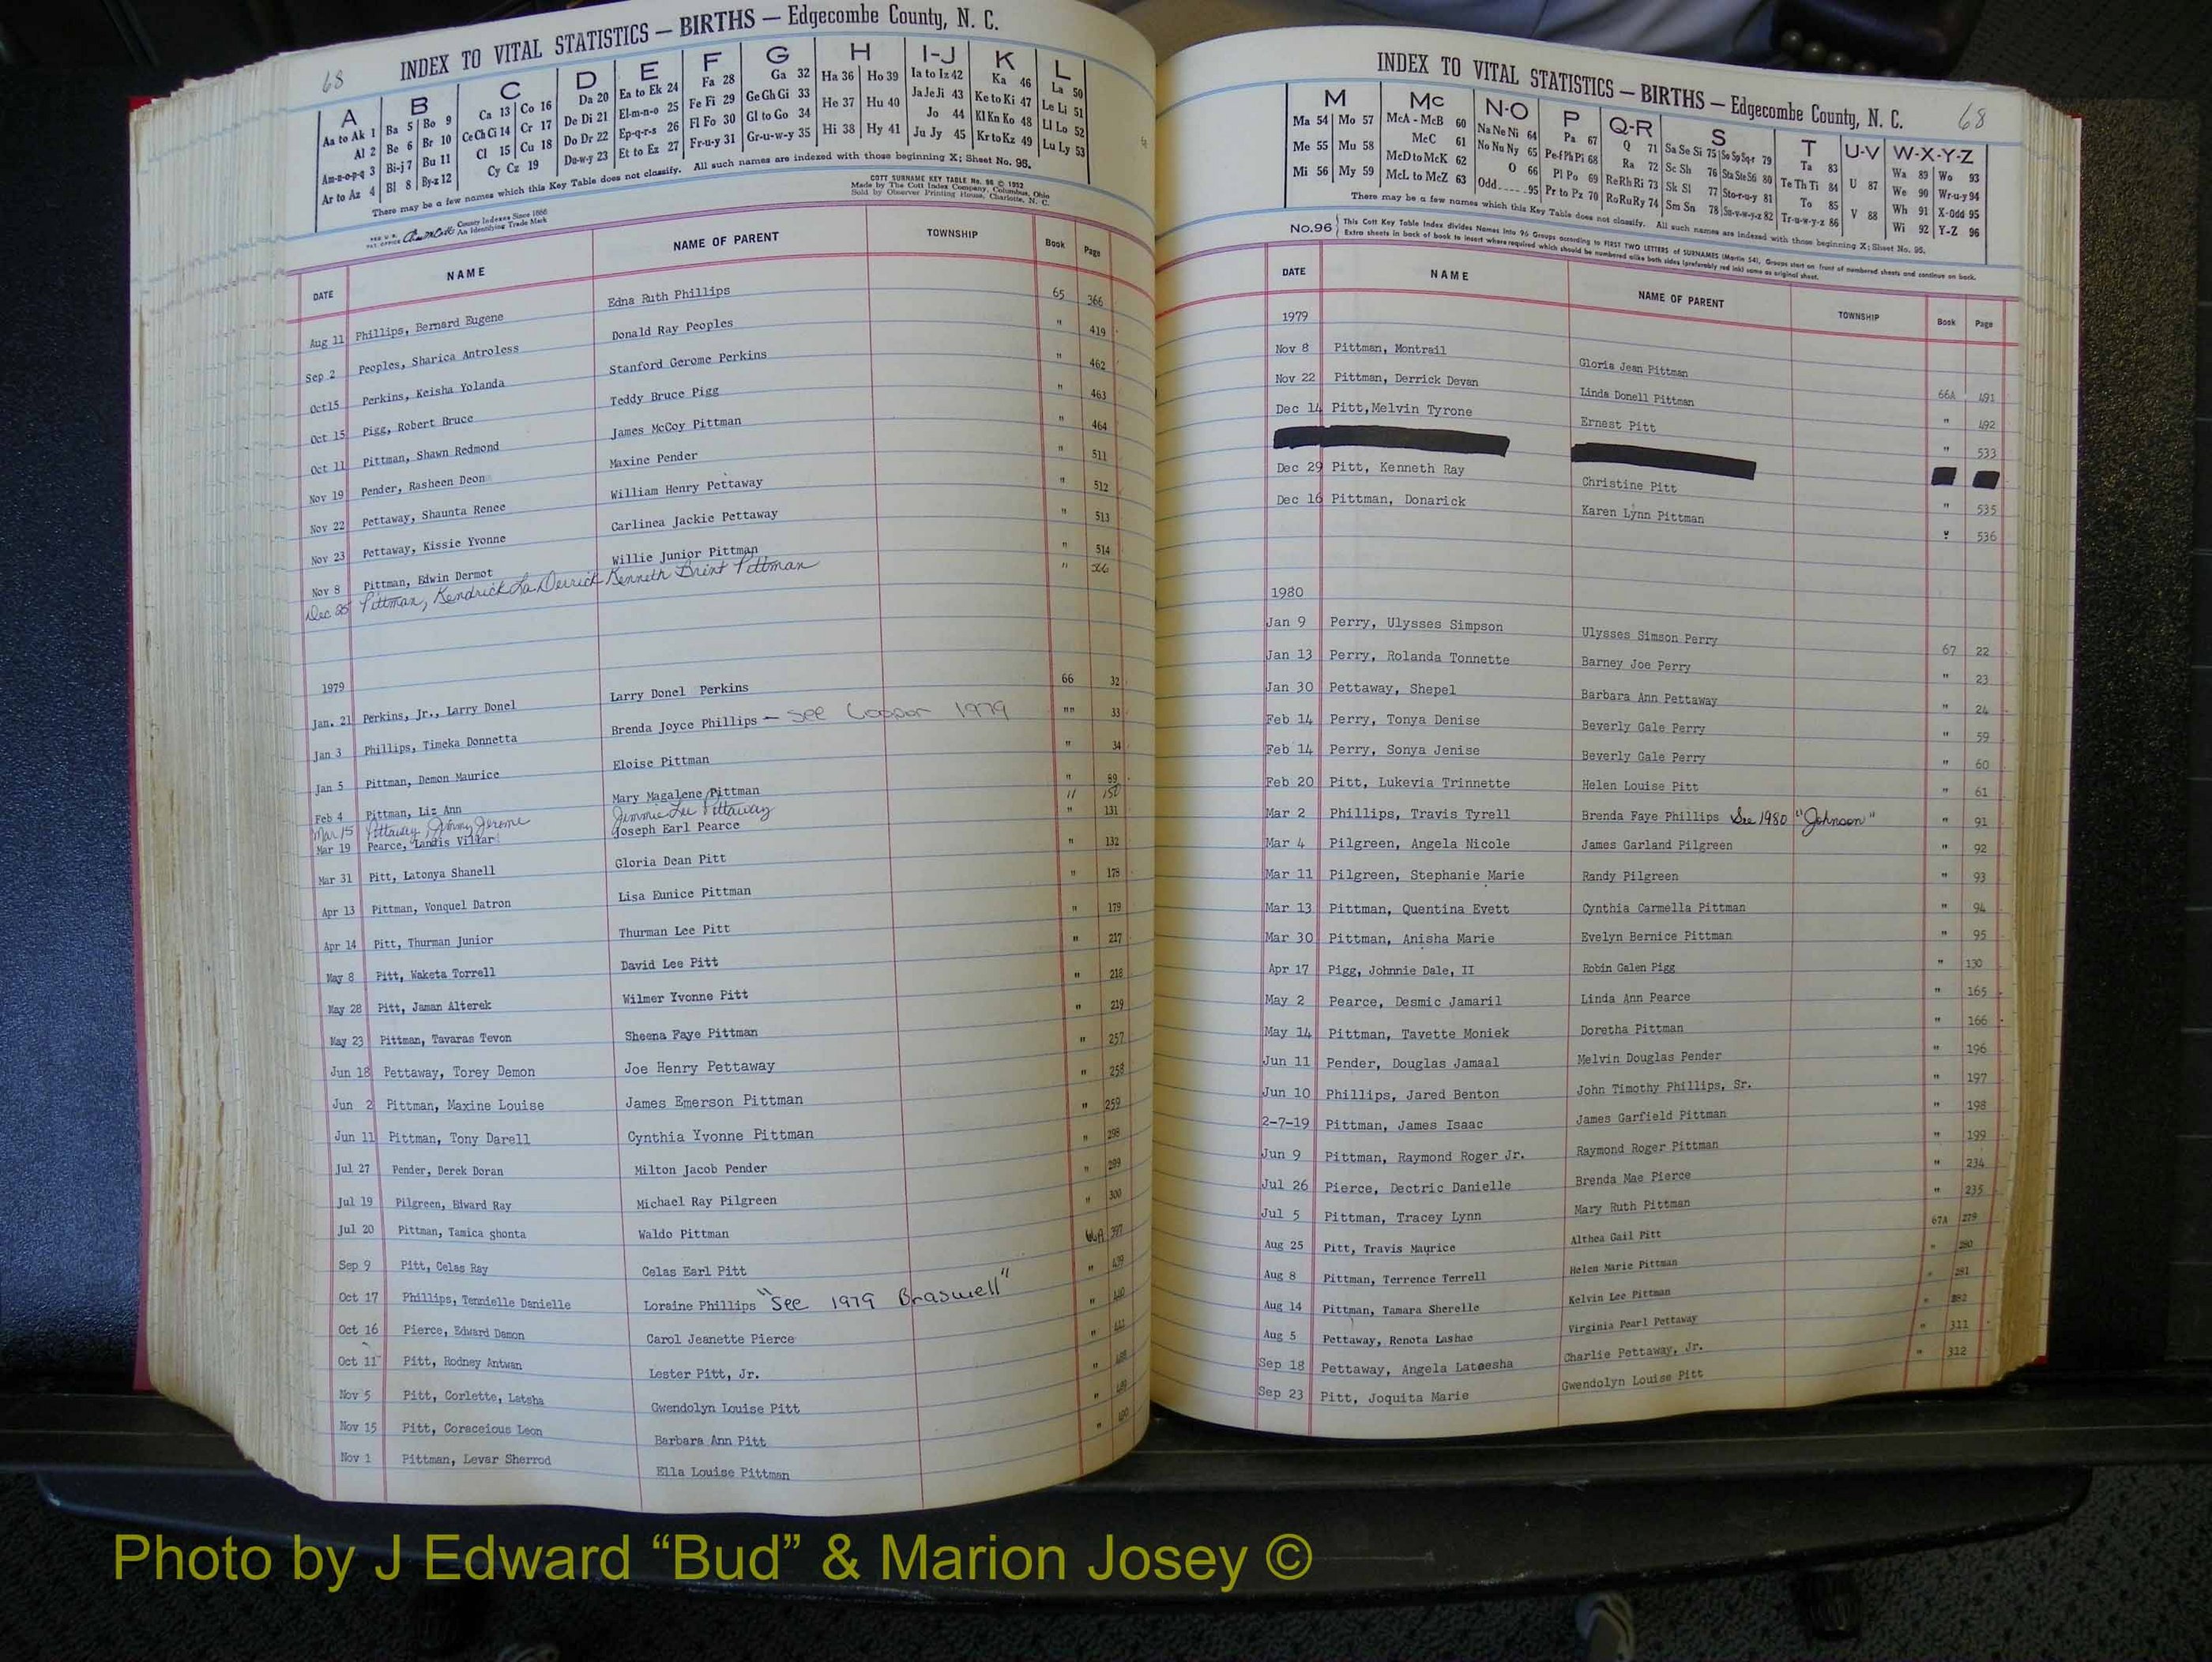 68
INDEX TO VITAL STATISTICS — BIRTHS — Edgecombe County, N. C.
A B C D E F G H I-J K L
Aa to Ak 1 Ba 5 Bo 9 Ca 13 Co 16 Da 20 Ea to Ek 24 Fa 28 Ga 32 Ha 36 Ho 39 Ia to Iz 42 Ka 46 La 50
Al 2 Be 6 Br 10 Ce Ch Ci 14 Cr 17 De Di 21 El-m-n-o 25 Fe Fi 29 Ge Gh Gi 33 He 37 Hu 40 Ja Je Ji 43 Ke to Ki 47 Le Li 51
Am-n-o-p-q 3 Bi-j 7 Bu 11 Cl 15 Cu 18 Do Dr 22 Ep-q-r-s 26 Fl Fo 30 Gl to Go 34 Hi 38 Hy 41 Jo 44 Kl Kn Ko 48 Ll Lo 52
Ar to Az 4 Bl 8 By-z 12 Cy Cz 19 Du-w-y 23 Et to Ez 27 Fr-u-y 31 Gr-u-w-y 35 Ju Jy 45 Kr to Kz 49 Lu Ly 53
There may be a few names which this Key Table does not classify. All such names are indexed with those beginning X; Sheet No. 95.
COTT SURNAME KEY TABLE No. 96 © 1952
Made by The Cott Index Company, Columbus, Ohio
Sold by Observer Printing House, Charlotte, N. C.
County Indexes Since 1888
An Identifying Trade Mark
DATE NAME NAME OF PARENT TOWNSHIP Book Page
Aug 11 Phillips, Bernard Eugene Edna Ruth Phillips 65 366
Sep 2 Peoples, Sharica Antroless Donald Ray Peoples " 419
Oct15 Perkins, Keisha Yolanda Stanford Gerome Perkins " 462
Oct 15 Pigg, Robert Bruce Teddy Bruce Pigg " 463
Oct 11 Pittman, Shawn Redmond James McCoy Pittman " 464
Nov 19 Pender, Rasheen Deon Maxine Pender " 511
Nov 22 Pettaway, Shaunta Renee William Henry Pettaway " 512
Nov 23 Pettaway, Kissie Yvonne Carlinea Jackie Pettaway " 513
Nov 8 Pittman, Edwin Dermot Willie Junior Pittman " 514
Dec 25 Pittman, Kendrick La Derrick Kenneth Brint Pittman "
1979
Jan. 21 Perkins, Jr., Larry Donel Larry Donel Perkins 66 32
Jan 3 Phillips, Timeka Donnetta Brenda Joyce Phillips — see Copper 1979 "" 33
Jan 5 Pittman, Demon Maurice Eloise Pittman " 34
Feb 4 Pittman, Liz Ann Mary Magalene Pittman " 89
Mar 15 Pittaway, Jimmy Jerome Jimmie Lee Pittaway " 150
Mar 19 Pearce, Landis Villar Joseph Earl Pearce " 131
Mar 31 Pitt, Latonya Shanell Gloria Dean Pitt " 132
Apr 13 Pittman, Vonquel Datron Lisa Eunice Pittman " 178
Apr 14 Pitt, Thurman Junior Thurman Lee Pitt " 179
May 8 Pitt, Waketa Torrell David Lee Pitt " 217
May 28 Pitt, Jaman Alterek Wilmer Yvonne Pitt " 218
May 23 Pittman, Tavaras Tevon Sheena Faye Pittman " 219
Jun 18 Pettaway, Torey Demon Joe Henry Pettaway " 257
Jun 2 Pittman, Maxine Louise James Emerson Pittman " 258
Jun 11 Pittman, Tony Darell Cynthia Yvonne Pittman " 259
Jul 27 Pender, Derek Doran Milton Jacob Pender " 298
Jul 19 Pilgreen, Edward Ray Michael Ray Pilgreen " 299
Jul 20 Pittman, Tamica shonta Waldo Pittman " 300
Sep 9 Pitt, Celas Ray Celas Earl Pitt 66A 397
Oct 17 Phillips, Tennielle Danielle Loraine Phillips "See 1979 Braswell" " 439
Oct 16 Pierce, Edward Damon Carol Jeanette Pierce " 440
Oct 11 Pitt, Rodney Antwan Lester Pitt, Jr. " 441
Nov 5 Pitt, Corlette, Latsha Gwendolyn Louise Pitt " 488
Nov 15 Pitt, Coraceious Leon Barbara Ann Pitt " 489
Nov 1 Pittman, Levar Sherrod Ella Louise Pittman " 490
INDEX TO VITAL STATISTICS — BIRTHS — Edgecombe County, N. C.
68
M Mc N-O P Q-R S T U-V W-X-Y-Z
Ma 54 Mo 57 McA - McB 60 Na Ne Ni 64 Pa 67 Q 71 Sa Se Si 75 So Sp Sq-r 79 Ta 83 Wa 89 Wo 93
Me 55 Mu 58 McC 61 No Nu Ny 65 Pe-f Ph Pi 68 Ra 72 Sc Sh 76 Sta Ste S6 80 Te Th Ti 84 U 87 We 90 Wr-u-y 94
Mi 56 My 59 McD to McK 62 O 66 Pl Po 69 Re Rh Ri 73 Sk Sl 77 Sto-r-u-y 81 To 85 V 88 Wh 91 X-Odd 95
McL to McZ 63 Odd 95 Pr to Pz 70 Ro Ru Ry 74 Sm Sn 78 Su-v-w-y-z 82 Tr-u-w-y-z 86 Wi 92 Y-Z 96
There may be a few names which this Key Table does not classify. All such names are indexed with those beginning X; Sheet No. 95.
No. 96 This Cott Key Table Index divides Names into 96 Groups according to FIRST TWO LETTERS of SURNAMES (Martin 54), Groups start on front of numbered sheets and continue on back.
Extra sheets in back of book to insert where required which should be numbered alike both sides (preferably red ink) same as original sheet.
DATE NAME NAME OF PARENT TOWNSHIP Book Page
1979
Nov 8 Pittman, Montrail Gloria Jean Pittman 66A 491
Nov 22 Pittman, Derrick Devan Linda Donell Pittman " 492
Dec 14 Pitt,Melvin Tyrone Ernest Pitt " 533
Dec 29 Pitt, Kenneth Ray Christine Pitt " 535
Dec 16 Pittman, Donarick Karen Lynn Pittman " 536
1980
Jan 9 Perry, Ulysses Simpson Ulysses Simson Perry 67 22
Jan 13 Perry, Rolanda Tonnette Barney Joe Perry " 23
Jan 30 Pettaway, Shepel Barbara Ann Pettaway " 24
Feb 14 Perry, Tonya Denise Beverly Gale Perry " 59
Feb 14 Perry, Sonya Jenise Beverly Gale Perry " 60
Feb 20 Pitt, Lukevia Trinnette Helen Louise Pitt " 61
Mar 2 Phillips, Travis Tyrell Brenda Faye Phillips See 1980 "Johnson" " 91
Mar 4 Pilgreen, Angela Nicole James Garland Pilgreen " 92
Mar 11 Pilgreen, Stephanie Marie Randy Pilgreen " 93
Mar 13 Pittman, Quentina Evett Cynthia Carmella Pittman " 94
Mar 30 Pittman, Anisha Marie Evelyn Bernice Pittman " 95
Apr 17 Pigg, Johnnie Dale, II Robin Galen Pigg " 130
May 2 Pearce, Desmic Jamaril Linda Ann Pearce " 165
May 14 Pittman, Tavette Moniek Doretha Pittman " 166
Jun 11 Pender, Douglas Jamaal Melvin Douglas Pender " 196
Jun 10 Phillips, Jared Benton John Timothy Phillips, Sr. " 197
2-7-19 Pittman, James Isaac James Garfield Pittman " 198
Jun 9 Pittman, Raymond Roger Jr. Raymond Roger Pittman " 199
Jul 26 Pierce, Dectric Danielle Brenda Mae Pierce " 234
Jul 5 Pittman, Tracey Lynn Mary Ruth Pittman " 235
Aug 25 Pitt, Travis Maurice Althea Gail Pitt 67A 279
Aug 8 Pittman, Terrence Terrell Helen Marie Pittman " 280
Aug 14 Pittman, Tamara Sherelle Kelvin Lee Pittman " 281
Aug 5 Pettaway, Renota Lashae Virginia Pearl Pettaway " 282
Sep 18 Pettaway, Angela Lateesha Charlie Pettaway, Jr. " 311
Sep 23 Pitt, Joquita Marie Gwendolyn Louise Pitt " 312
Photo by J Edward “Bud” & Marion Josey ©